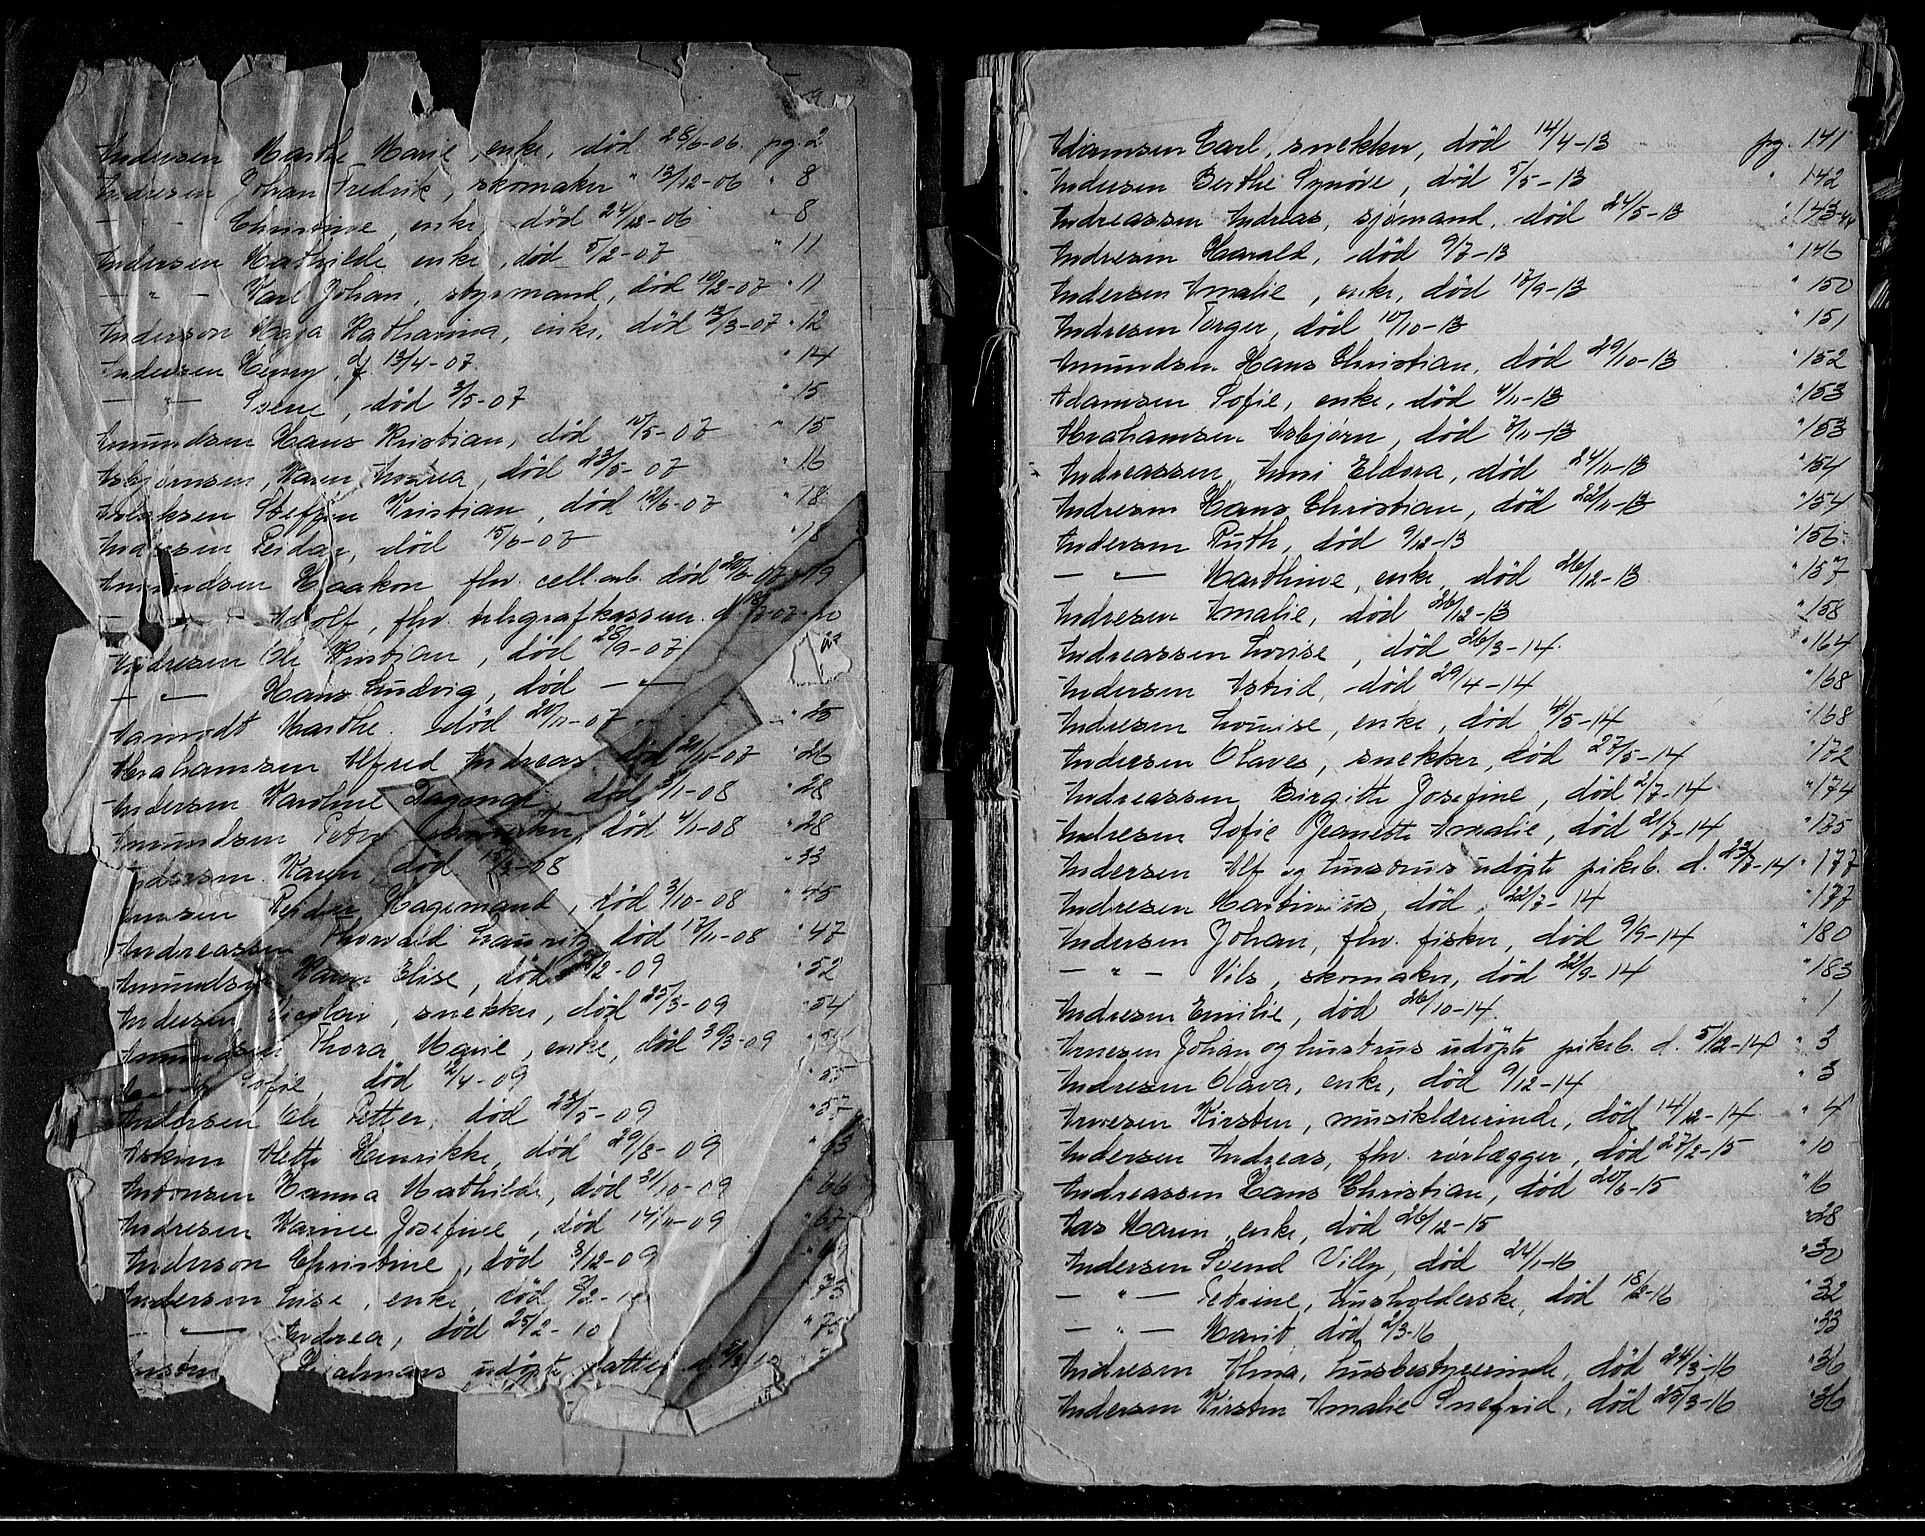 Andersen Marthe Marie, enke, død 28/6-06. pg. 2
Andresen Johan Fredrik, skomaker " 13/12-06 " 8
— " — Christine, enke, død 24/12-06 " 8
Andersen Mathilde enke, død 5/2-07 " 11
— " — Karl Johan, styrmand, død 19/2-07 " 11
Anderson Maja Katharina, enke, død 13/3-07 " 12
Andersen Henny, d 13/4-07. " 14
— " — Signe, død 3/5-07 " 15
Amundsen Hans Kristian, død 10/5-07 " 15
Asbjørnsen, Karen Andrea, død 23/5-07 " 16
Aslaksen Steffen Kristian, død 12/6-07 " 18
Andresen Peider, død 15/6-07 " 18
Amundsen Haakon fhv. cell.arb. død 20/6-07 " 19
— Adolf, fhv. telegrafkasserer d. 18/7-07 " 20
Andresen Ole Kristian, død 28/9-07
— " — Hans Ludvig, død — " —
Aamodt Marthe. død 20/11-07 " 25
Abrahamsen Alfred Andreas død 21/11-07 " 26
Andersen Karoline Dagmar, død 3/1-08 " 28
Amundsen Peter død 4/1-08 " 28
Andersen Karen, død 13/3-08 " 33
Reidar Hagemand, død 3/10-08 " 45
Andreassen Thorvald Lauritz, død 17/11-08 " 47
Amundsen Karen Elise, død /2-09 " 52
Andersen snekker, død 25/3-09 " 54
Amundsen Thora Marie, enke, død 30/3-09
Sofie død 2/4-09 " 55
Andersen Ole Petter, død 23/5-09 " 57
Askim Alette Henrikke, død 29/8-09 " 63
Antonsen Hanna Mathilde, død 31/10-09 " 66
Andresen Karine Josefine, død 14/11-09 " 67
Anderson Christine, død 3/12-09
Andersen Lise, enke, død /2-10 " 75
— " — Andrea, død 25/2-10 " 75
Hjalmars udøpte datter d.
Adamsen Carl, snekker, død 14/4-13 pg. 141
Andersen Berthe Synøve, død 5/5-13 " 142
Andreassen Andreas, sjømand, død 24/5-13 " 143-44
Andresen Harald, død 9/7-13 " 146
Andersen Amalie, enke, død 17/9-13 " 150
Andresen Torger, død 10/10-13 " 151
Amundsen Hans Christian, død 29/10-13 " 152
Adamsen Sofie, enke, død 4/11-13 " 153
Abrahamsen Asbjørn, død 7/11-13 " 153
Andreassen Anni Eldora, død 24/11-13 " 154
Andresen Hans Christian, død 22/11-13 " 154
Andersen Ruth, død 9/12-13 " 156
— " — Marthine, enke, død 26/12-13 " 157
Andresen Amalie, død 26/12-13 " 158
Andreassen Lovise, død 26/3-14. " 164
Andersen Astrid, død 29/4-14 " 168
Andresen Louise, enke, død 4/5-14 " 168
Andersen Olaves, snekker, død 27/5-14 " 172
Andreassen Birgitte Josefine, død 2/7-14 " 174
Andresen Sofie Jeanette Amalie, død 21/7-14 " 175
Andersen Alf og hustrus udøpte pikeb. d. 23/7-14 " 177
Andresen Martinius, død 22/7-14 " 177
Andersen Johan, fhv. fisker, død 9/9-14 " 180
— " — Nils, skomaker, død 22/9-14 " 183
Andresen Emilie, død 26/10-14. " 1
Arnesen Johan og hustrus udøpte pikeb. d. 5/12-14 " 3
Andresen Olava, enke, død 9/12-14 " 3
Arnesen Kirsten, musiklærerinde, død 14/12-14 " 4
Andersen Andreas, fhv. rørlægger, død 27/2-15 " 10
Andreassen Hans Christian, død 20/6-15 " 16
Aas Maren enke, død 26/12-15 " 28
Andersen Svend Villy, død 24/1-16 " 30
— " — Petrine, husholderske, død 18/2-16 " 32
— " — Marit, død 2/3-16 " 33
Andresen Alma, husbestyrerinde, død 24/3-16 " 36
Andersen Kirsten Amalie Snefrid, død 25/3-16 " 36